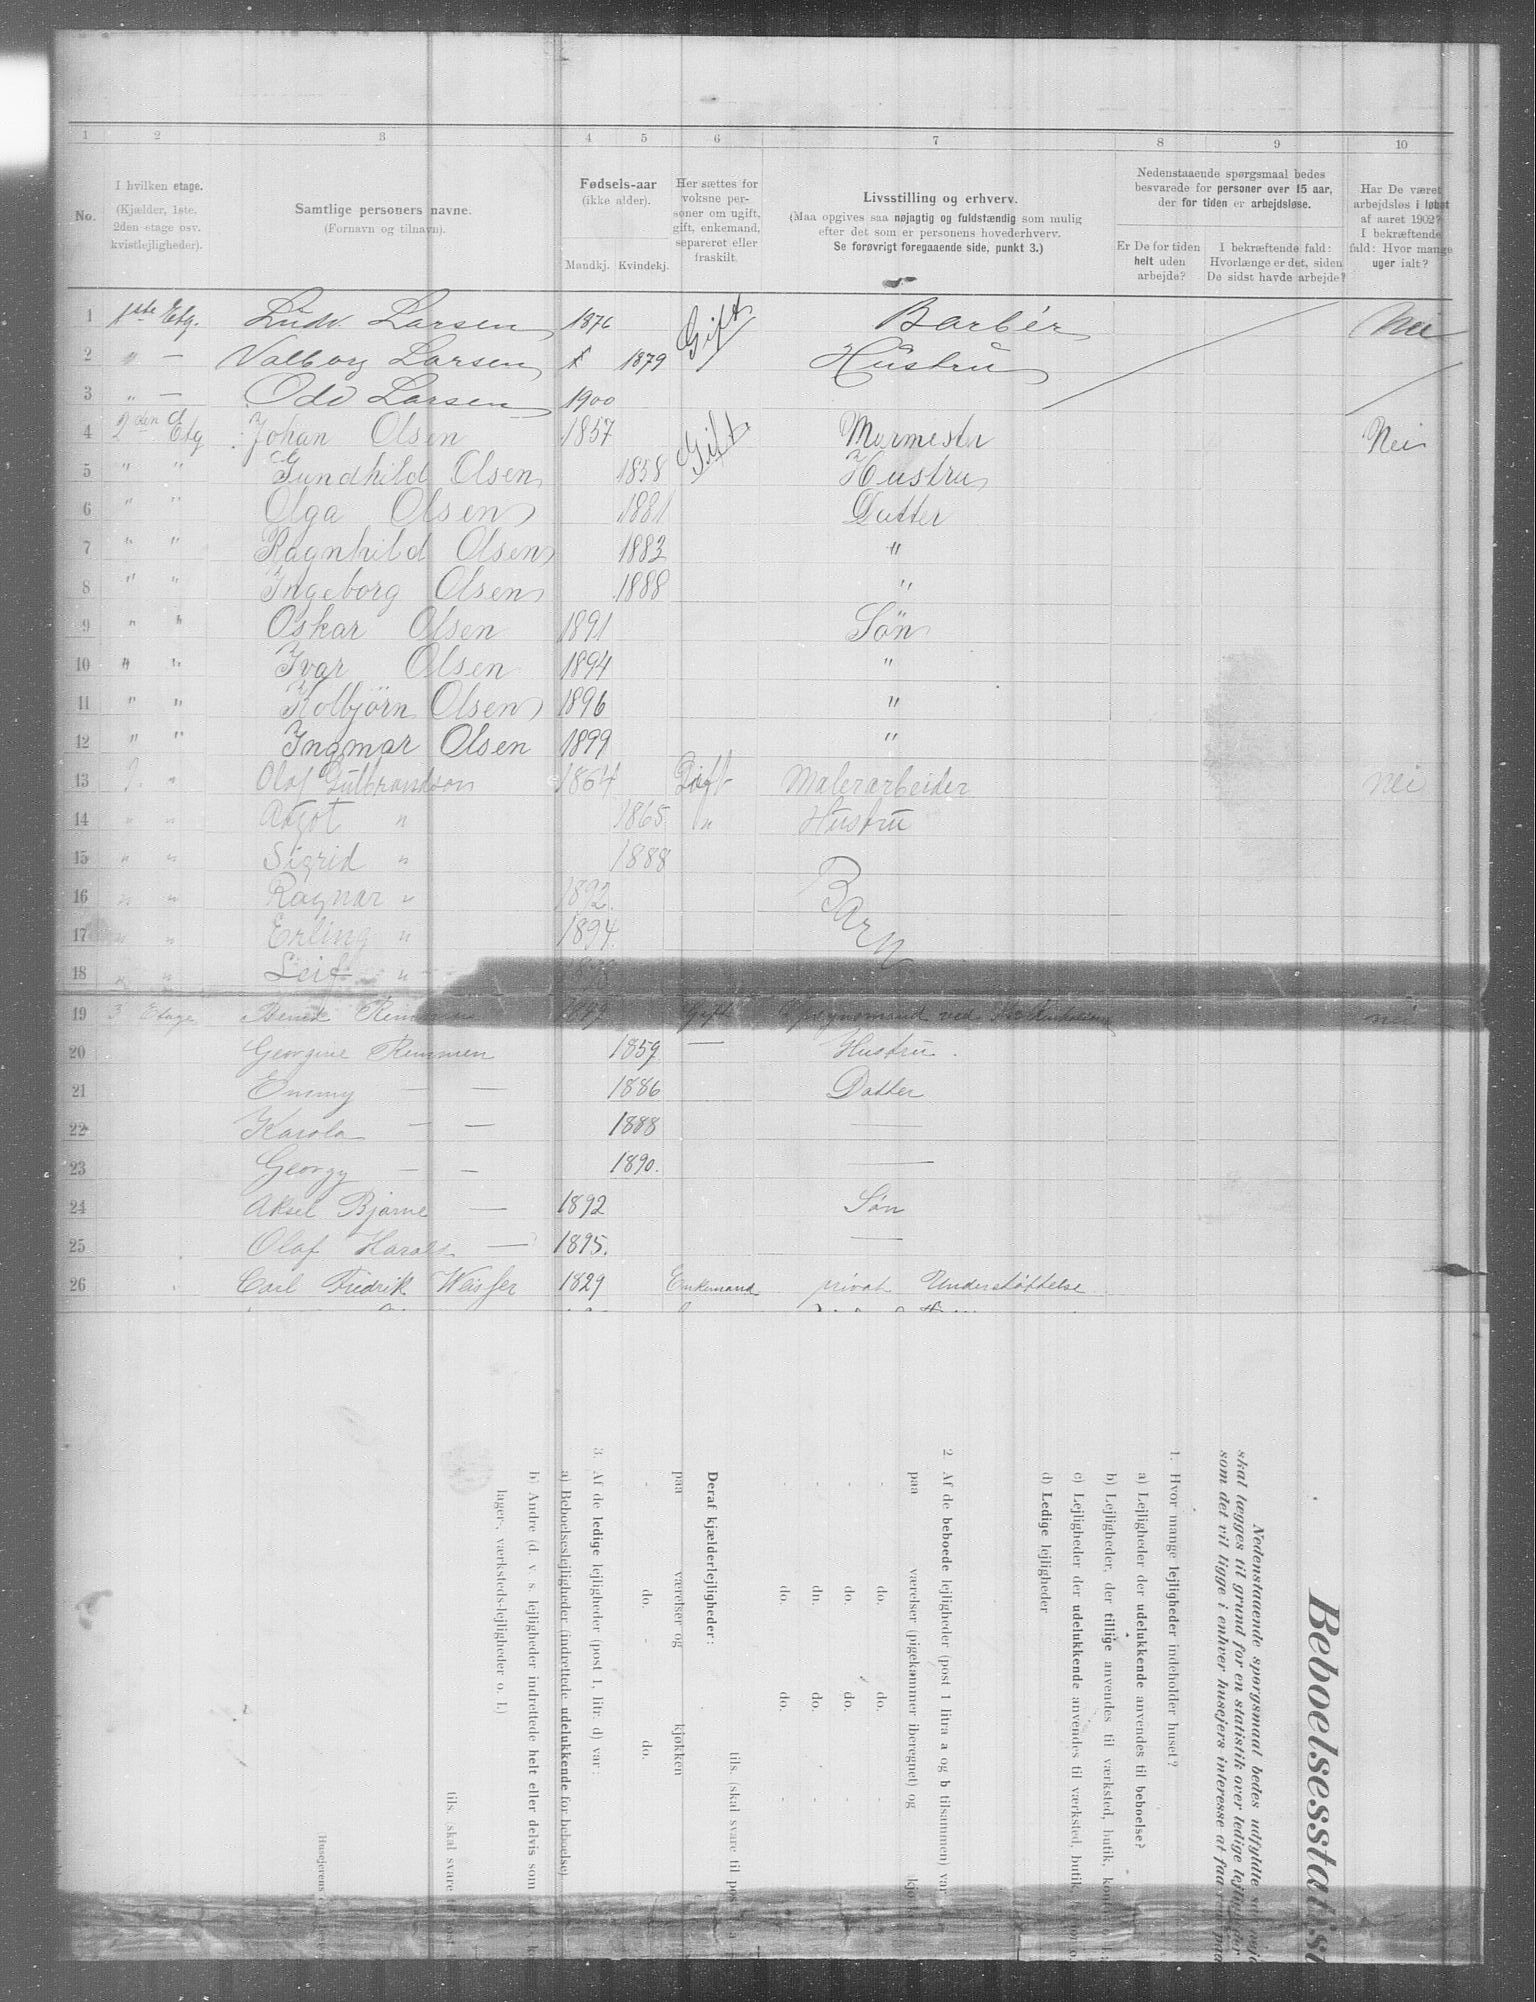 1 2 3 4 5 6 7 8 9 10
No.
I hvilken etage.
(Kjælder, 1ste.
2den etage osv.
kvistlejligheder).
Samtlige personers navne.
(Fornavn og tilnavn).
Fødsels-aar
(ikke alder).
Mandkj. Kvindekj.
Her sættes for
voksne per-
soner om ugift,
gift, enkemand,
separeret eller
fraskilt.
Livsstilling og erhverv.
(Maa opgives saa nøjagtig og fuldstændig som mulig
efter det som er personens hovederhverv.
Se forøvrigt foregaaende side, punkt 3.)
Nedenstaaende spørgsmaal bedes
besvarede for personer over 15 aar,
der for tiden er arbejdsløse.
Er De for tiden
helt uden
arbejde?
I bekræftende fald:
Hvorlænge er det, siden
De sidst havde arbejde?
Har De været
arbejdsløs i løbet
af aaret 1902?
I bekræftende
fald: Hvor mange
uger ialt?
1 1ste Etg. Ludv. Larsen 1876 Gift Barbér Nei
2 " — Valborg Larsen 1879 Hustru
3 " — Odd Larsen 1900
4 2den Etg Johan Olsen 1857 Gift Murmester Nei
5 " " Gundhild Olsen 1858 Hustru
6 " " Olga Olsen 1881 Datter
7 " " Ragnhild Olsen 1883 "
8 " " Ingeborg Olsen 1888 "
9 " " Oskar Olsen 1891 Søn
10 " " Ivar Olsen 1894 "
11 " " Kolbjørn Olsen 1896 "
12 " " Ingmar Olsen 1899 "
13 " Olaf Gulbrandsen 1864 Gift Malerarbeider Nei
14 " " Aagot " 1865 " Hustru
15 " " Sigrid " 1888
16 " " Ragnar " 1892. Barn
17 " " Erling " 1894.
18 " " Leif "
19 3 Etage Rimmen Gift Opsynsmand ved nei
20 Georgine Rimmen 1859 — Hustru.
21 Emmy — — 1886 Datter
22 Karola — — 1888 —
23 Georgy — — 1890. —
24 Aksel Bjarne — 1892 Søn
25 Olaf Harald — 1895. —
26 Carl Fredrik 1829 Enkemand privat Understøttelse
Beboelsesstatis
Nedenstaaende spørgsmaal bedes udfyldte
skal lægges til grund for en statistik over ledige lejligheder
som det vil ligge i enhver husejers interesse at faa
1. Hvor mange lejligheder indeholder huset?
a) Lejligheder der udelukkende anvendes til beboelse?
b) Lejligheder, der tillige anvendes til værksted, butik,
c) Lejligheder der udelukkende anvendes til værksted, butik,
d) Ledige lejligheder
2. Af de beboede lejligheder (post 1 litra a og b tilsammen) var
paa værelser (pigekammer iberegnet) og
do. do.
do. do.
dn. do.
do. do.
tils. (skal svare til pos
Deraf kjælderlejligheder:
paa værelser og kjøkken
do. do.
3. Af de ledige lejligheder (post 1, litr. d) var:
a) Beboelseslejligheder (indrettede udelukkende for beboelse)
b) Andre (d. v. s. lejligheder indrettede helt eller delvis som
lager-, værksteds-lejligheder o. l.)
tils. (skal svare
Husejerens